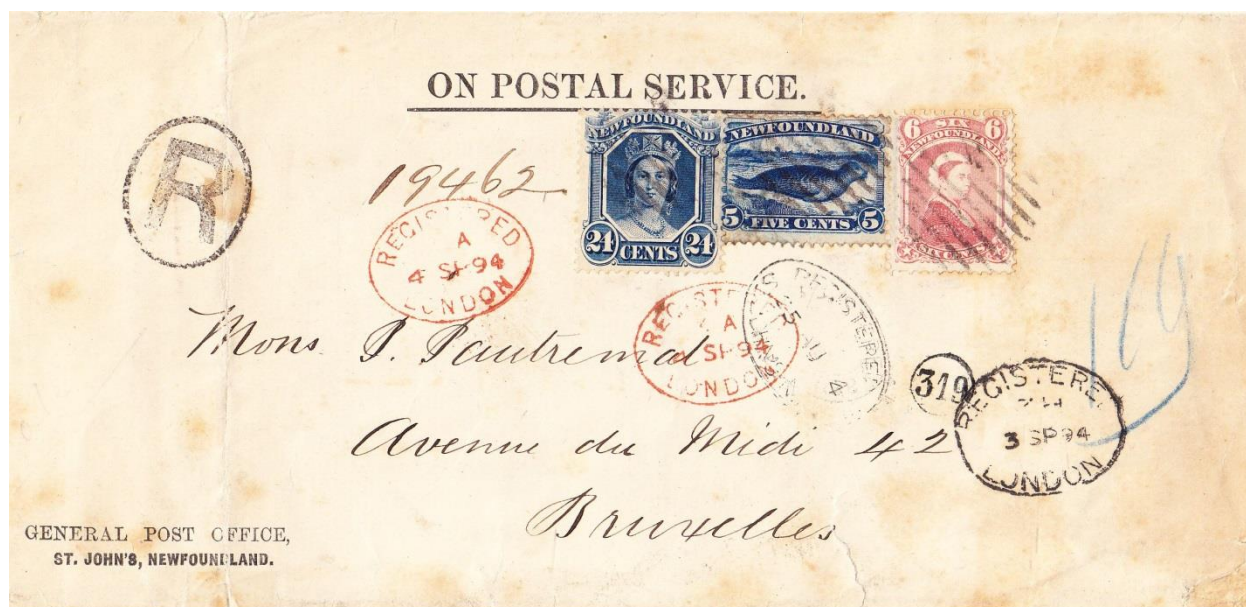 ON POSTAL SERVICE.
R
19462
NEWFOUNDLAND
24 CENTS 24
NEWFOUNDLAND
5 FIVE CENTS 5
6 SIX 6
NEWFOUNDLAND
SIX CENTS
REGISTERED
A
4 SP 94
LONDON
REGISTE
A
4 SP 94
LONDON
REGISTERED
319
REGISTERE
3 SP 94
LONDON
169
Mons. P. Pautremat
Avenue du Midi 42
Bruxelles
GENERAL POST OFFICE,
ST. JOHN'S, NEWFOUNDLAND.